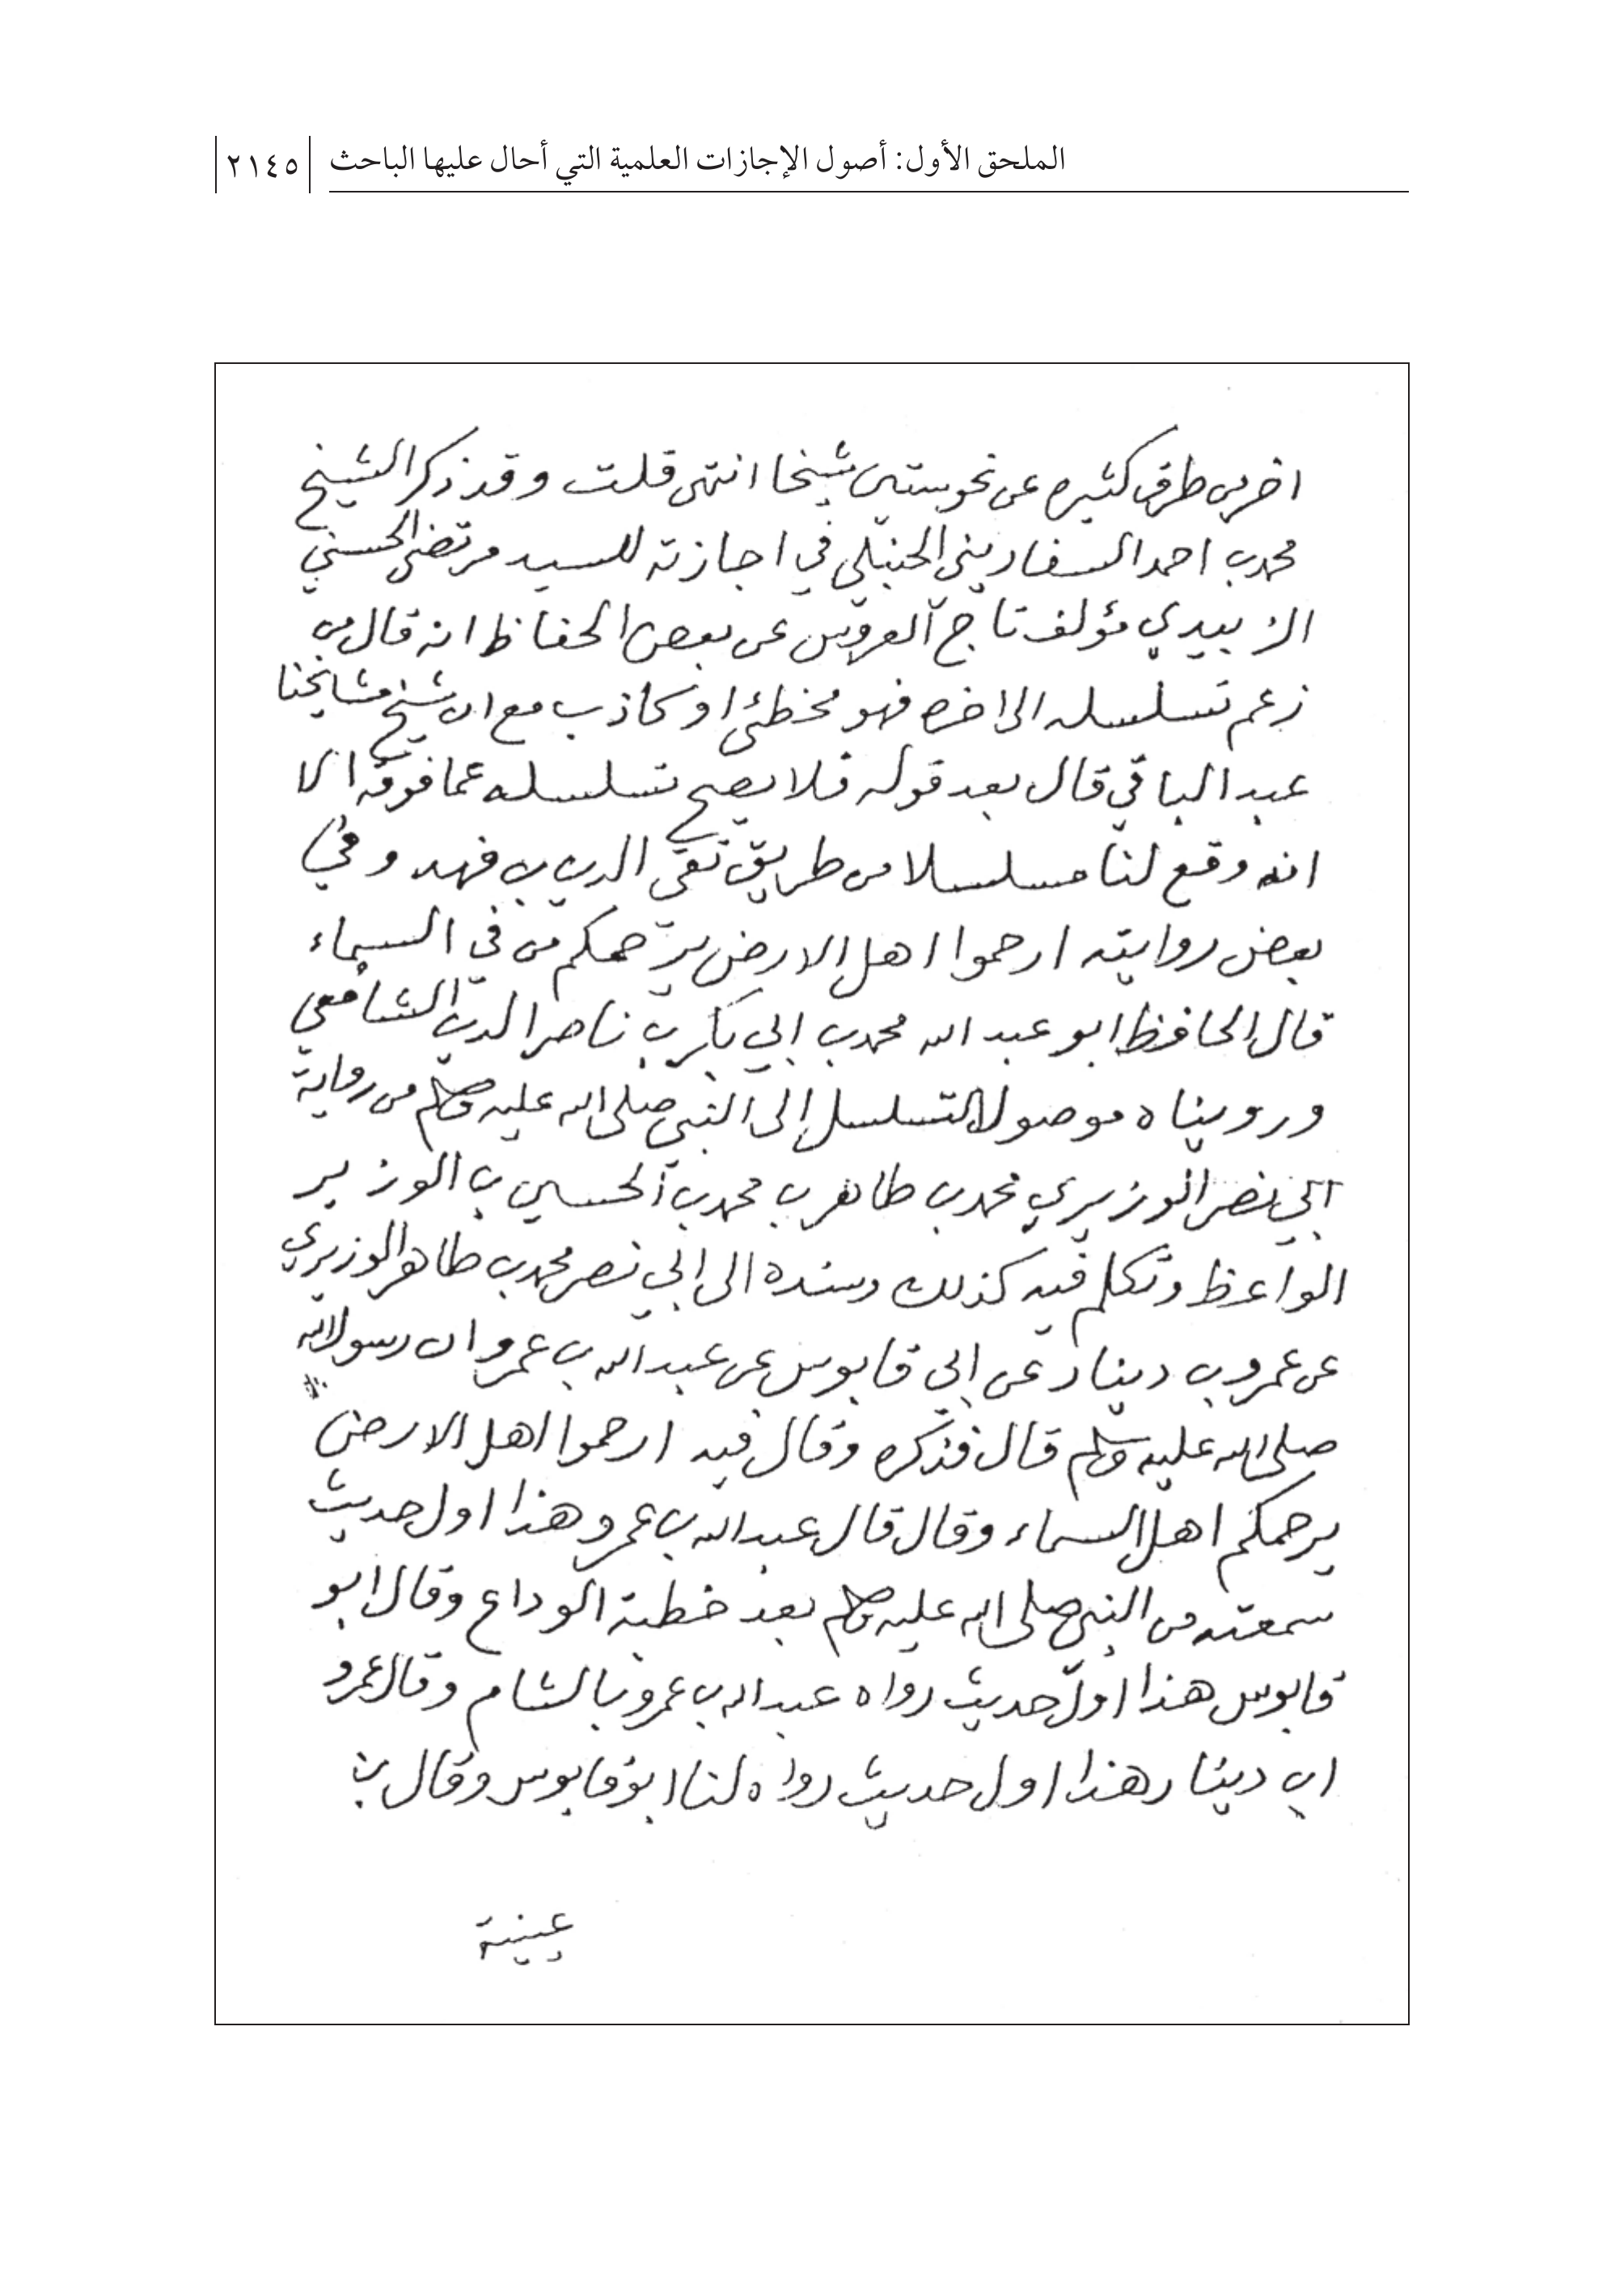 الملحق الأول: أصول الإجازات العلمية التي أحال عليها الباحث ٢١٤٥
اخر من طرق كثيره عن نحو ستين شيخا انتهى قلت وقد ذكر الشيخ
محمد بن احمد السفاريني الحنبلي في اجازته للسيد مرتضى الحسني
الزبيدي مؤلف تاج العروس عن بعض الحفاظ انه قال من
زعم تسلسله الى اخره فهو مخطئ او كاذب مع ان شيخ مشايخنا
عبد الباقي قال بعد قوله فلا يصح تسلسله عما فوقه الا
انه وقع لنا مسلسلا من طريق تقي الدين بن فهد وفي
بعض روايته ارحموا اهل الارض يرحمكم من في السماء
قال الحافظ ابو عبد الله محمد بن ابي بكر بن ناصر الدين الشافعي
ورويناه موصولا التسلسل إلى النبي صلى الله عليه وسلم من رواية
ابي نصر الوزيري محمد بن طاهر بن محمد بن الحسين بن الوزير
الواعظ وتكلم فيه كذلك وسنده الى ابي نصر محمد بن طاهر الوزيري
عن عمرو بن دينار عن ابي قابوس عن عبد الله بن عمرو ان رسول الله
صلى الله عليه وسلم قال فذكره وقال فيه ارحموا اهل الارض
يرحمكم اهل السماء وقال قال عبد الله بن عمرو هذا اول حديث
سمعته من النبي صلى الله عليه وسلم بعد خطبة الوداع وقال ابو
قابوس هذا اول حديث رواه عبد الله بن عمرو بالشام وقال عمرو
ابن دينار هذا اول حديث رواه لنا ابو قابوس وقال بن
عيينة